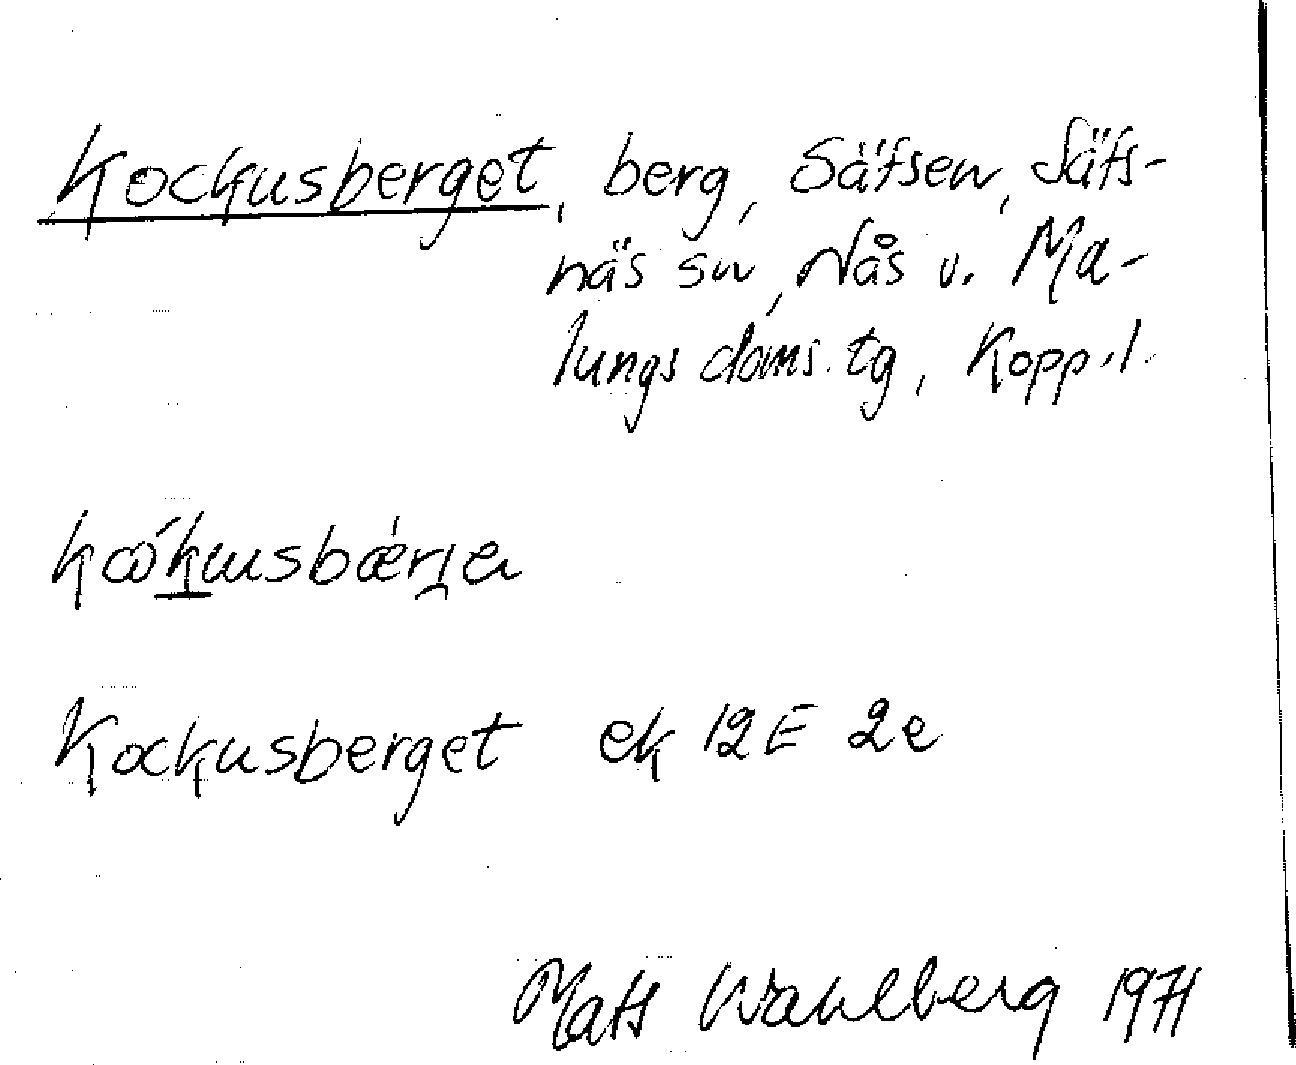 Kockusberget, berg, Säfsen, Säfs-
näs sn, Nås o. Ma-
lungs doms. tg, Kopp. l.
Kockusberget ek 12E 2e
Mats Wahlberg 1971